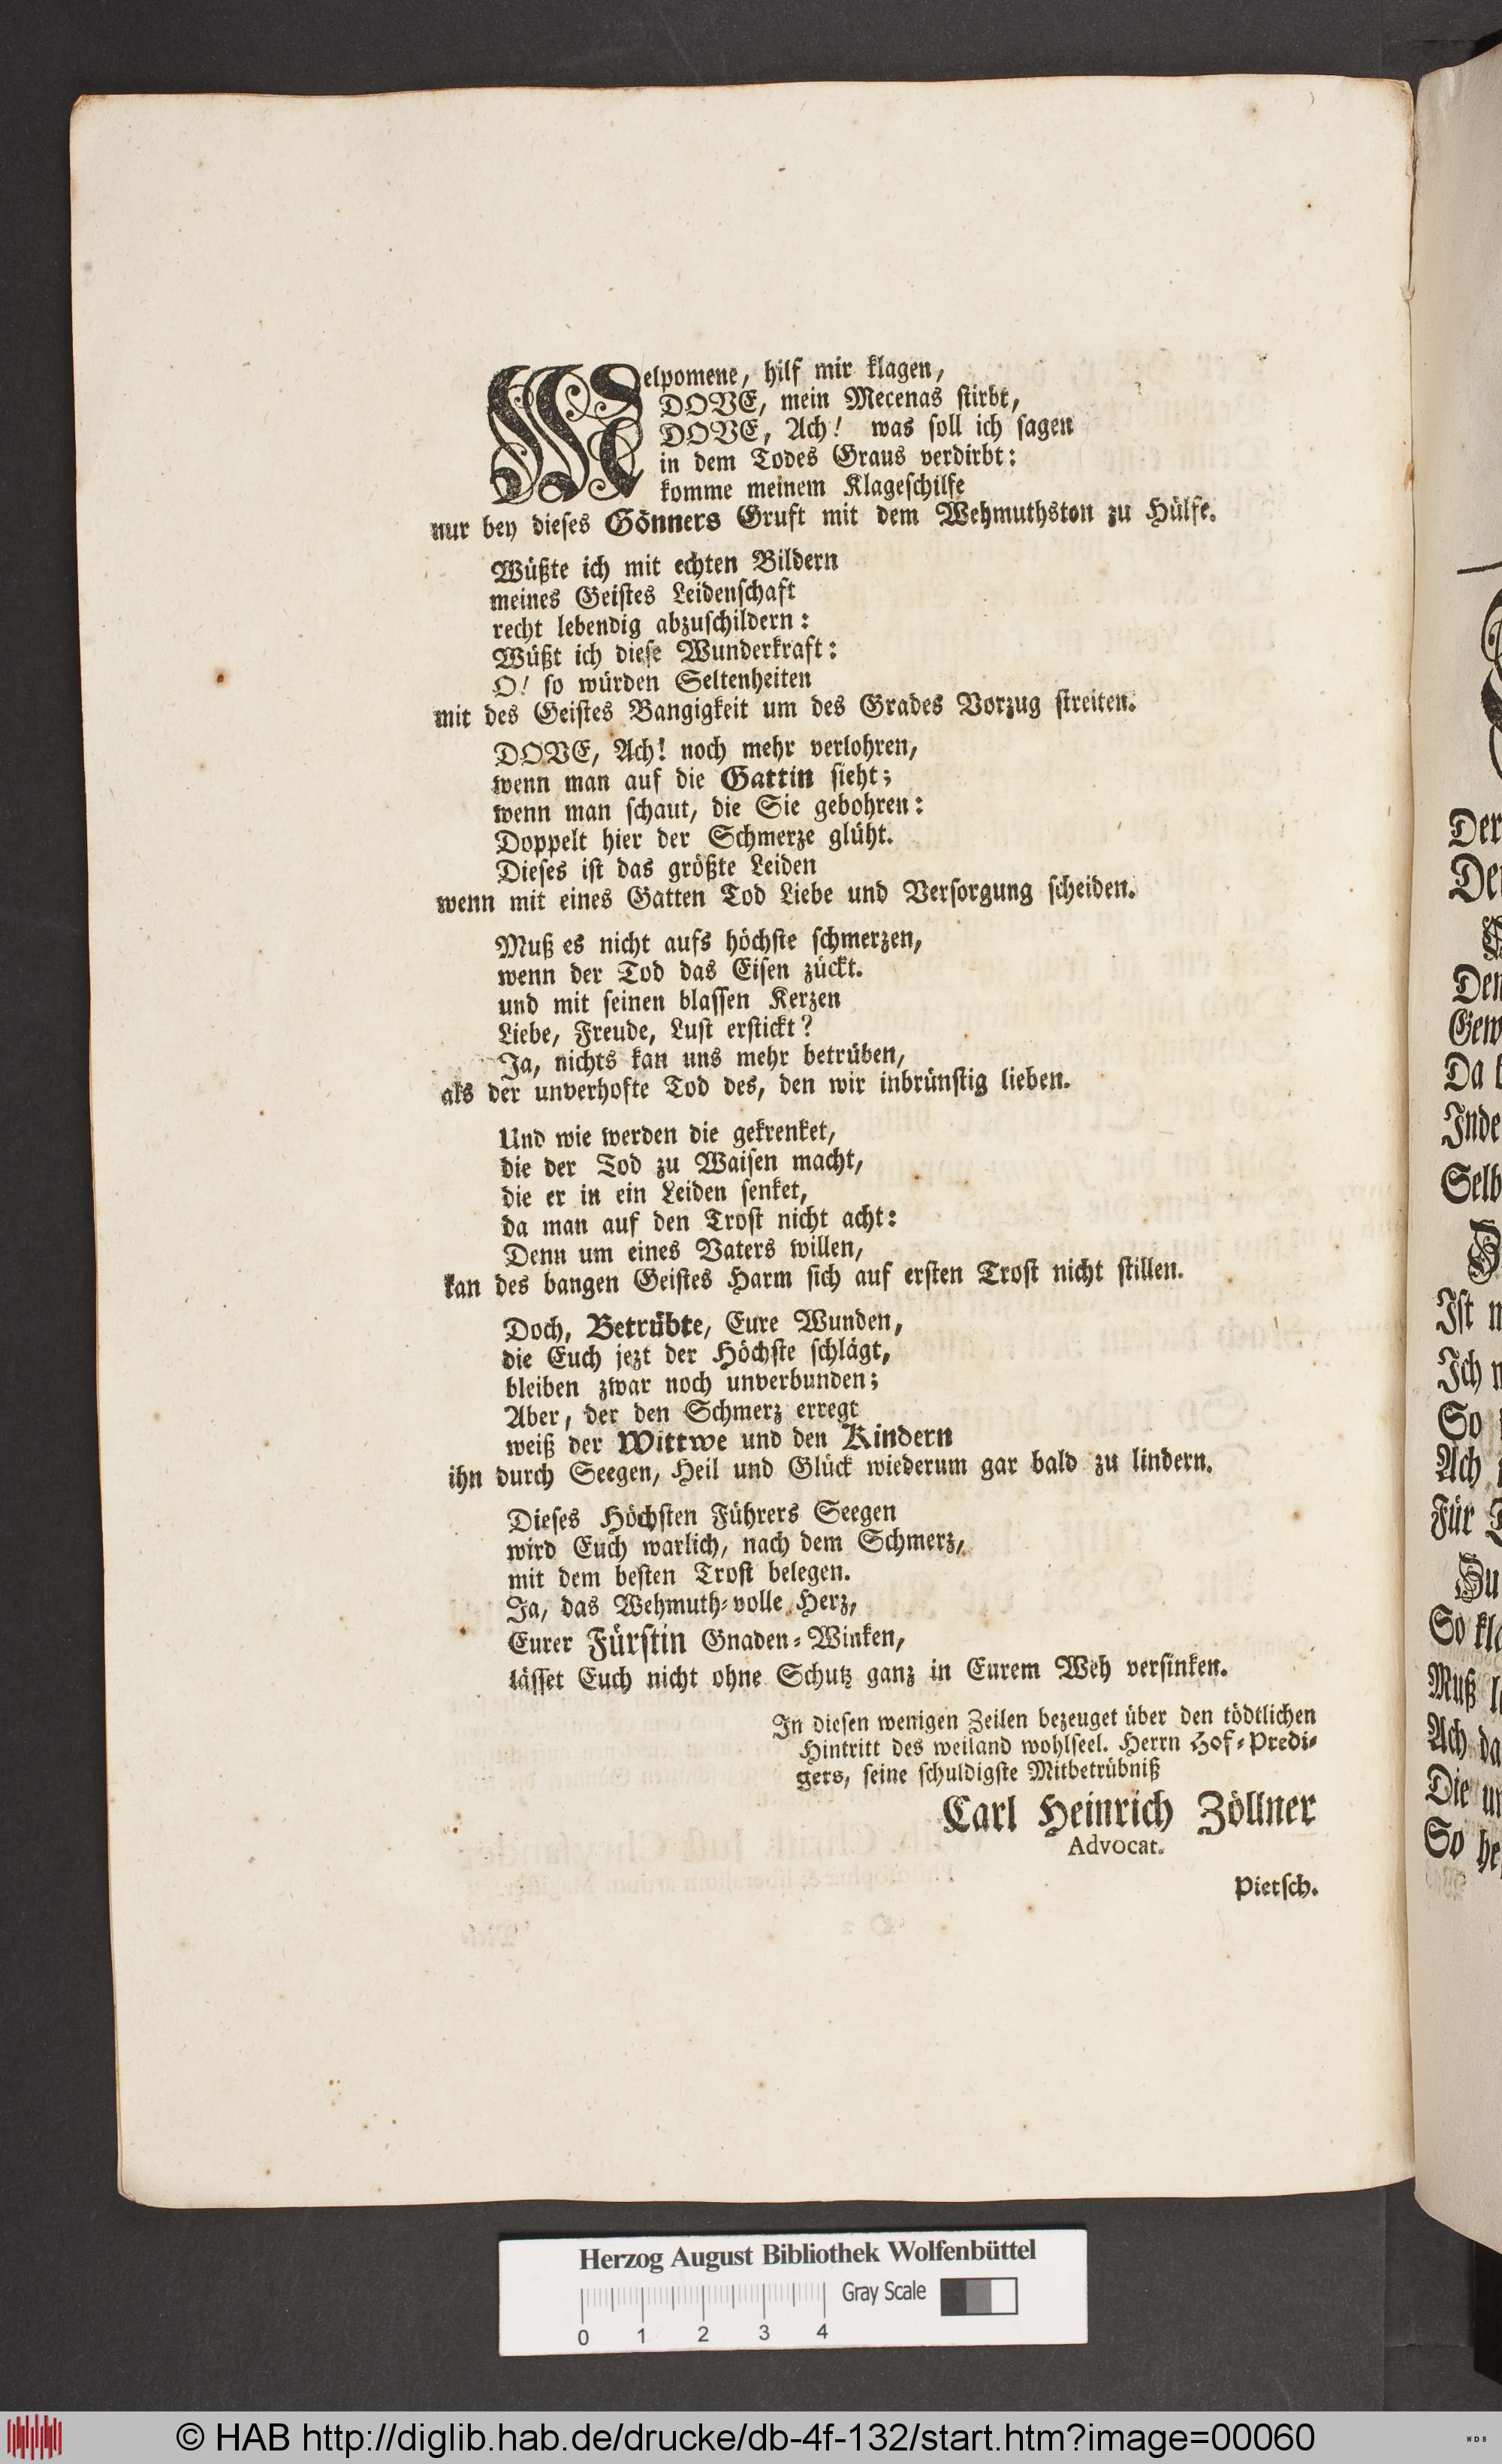 Melpomene, hilf mir klagen,
DOVE, mein Mecenas stirbt,
DOVE, Ach! was soll ich sagen
in dem Todes Graus verdirbt:
komme meinem Klageschilfe
nur bey dieses Gönners Gruft mit dem Wehmuthston zu Hülfe.
Wüßte ich mit echten Bildern
meines Geistes Leidenschaft
recht lebendig abzuschildern:
Wüßt ich diese Wunderkraft:
O! so würden Seltenheiten
mit des Geistes Bangigkeit um des Grades Vorzug streiten.
DOVE, Ach! noch mehr verlohren,
wenn man auf die Gattin sieht;
wenn man schaut, die Sie gebohren:
Doppelt hier der Schmerze glüht.
Dieses ist das größte Leiden
wenn mit eines Gatten Tod Liebe und Versorgung scheiden.
Muß es nicht aufs höchste schmerzen,
wenn der Tod das Eisen zückt.
und mit seinen blassen Kerzen
Liebe, Freude, Lust erstickt?
Ja, nichts kan uns mehr betrüben,
als der unverhofte Tod des, den wir inbrünstig lieben.
Und wie werden die gekrenket,
die der Tod zu Waisen macht,
die er in ein Leiden senket,
da man auf den Trost nicht acht:
Denn um eines Vaters willen,
kan des bangen Geistes Harm sich auf ersten Trost nicht stillen.
Doch, Betrübte, Eure Wunden,
die Euch jezt der Höchste schlägt,
bleiben zwar noch unverbunden;
Aber, der den Schmerz erregt
weiß der Wittwe und den Kindern
ihn durch Seegen, Heil und Glück wiederum gar bald zu lindern.
Dieses Höchsten Führers Seegen
wird Euch warlich, nach dem Schmerz,
mit dem besten Trost belegen.
Ja, das Wehmuth-volle Herz,
Eurer Fürstin Gnaden-Winken,
lässet Euch nicht ohne Schutz ganz in Eurem Weh versinken.
In diesen wenigen Zeilen bezeuget über den tödtlichen
Hintritt des weiland wohlseel. Herrn Hof-Predi-
gers, seine schuldigste Mitbetrübniß
Carl Heinrich Zöllner
Advocat.
Pietsch.
Der
De
Den
Gew
Da
Inde
Selb
Ist
Ich
So
Ach
Für
Du
So kl
Muß
Ach da
Die
So he
Herzog August Bibliothek Wolfenbüttel
Gray Scale
0 1 2 3 4
© HAB http://diglib.hab.de/drucke/db-4f-132/start.htm?image=00060
WDB